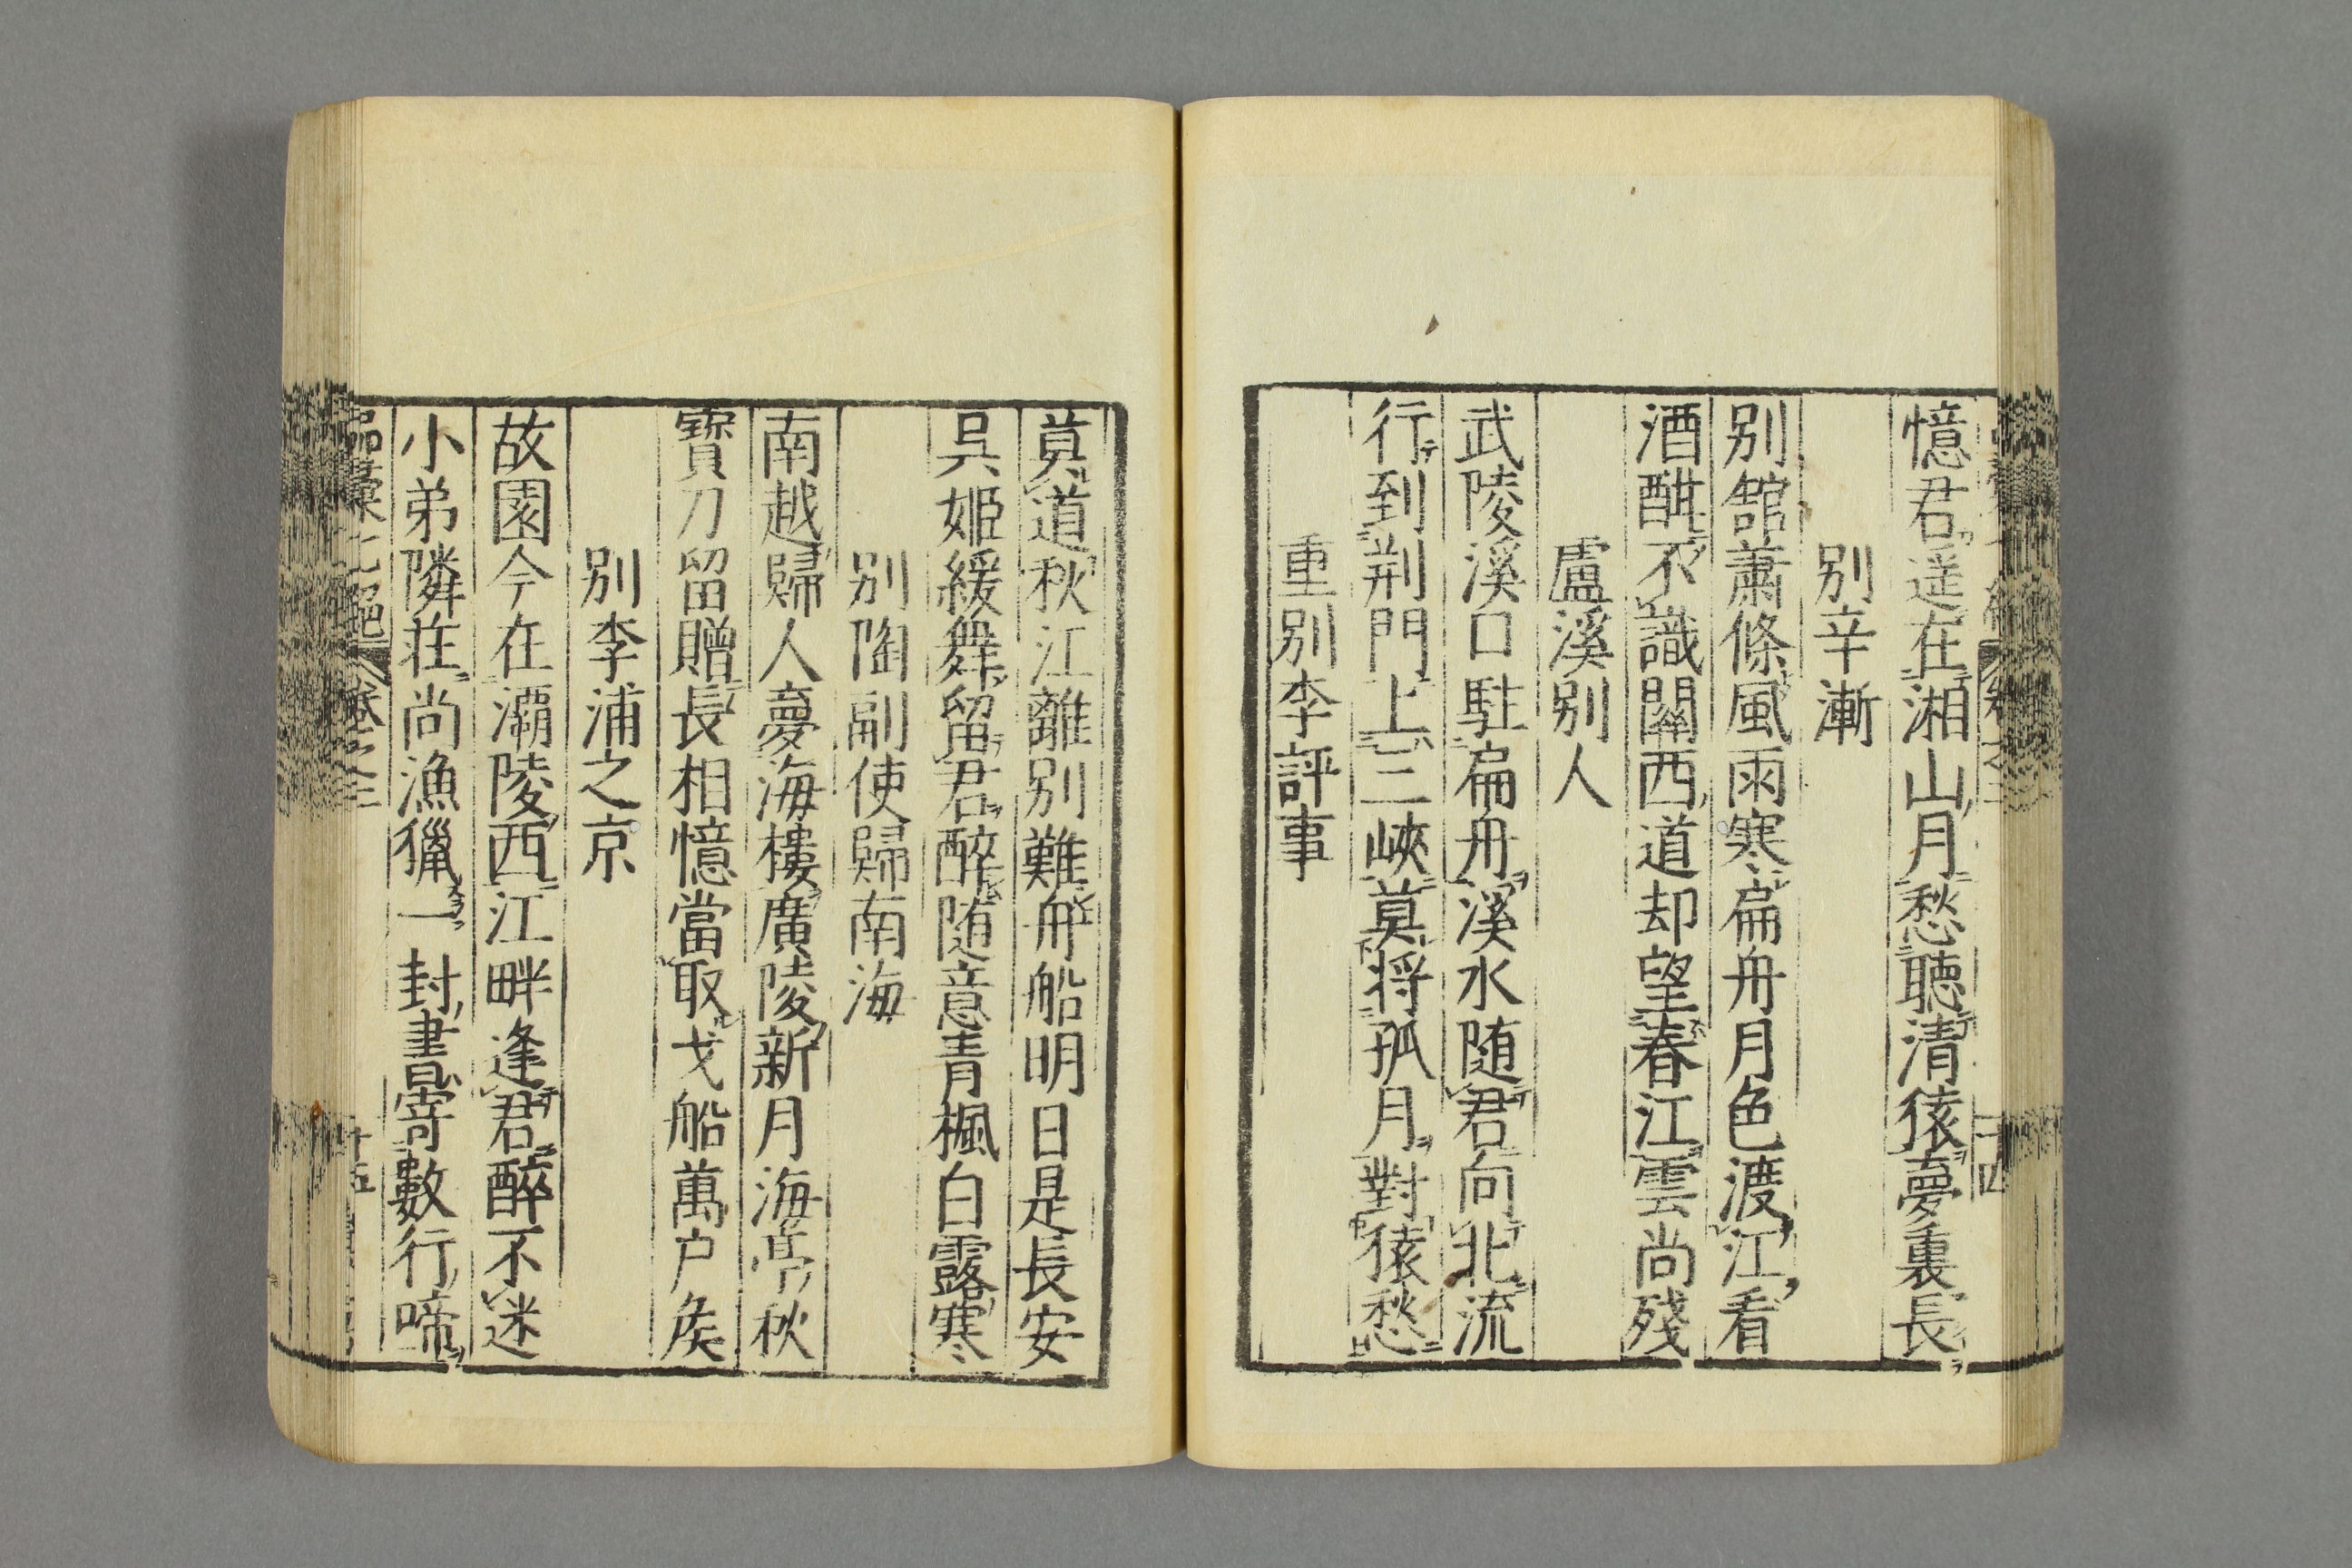 憶君遥在湘山月愁聽清猿夢裏長
別辛漸
別舘蕭條風雨寒扁舟月色渡江看
酒酣不識關西道却望春江雲尚殘
盧溪別人
武陵溪口駐扁舟溪水随君向北流
行到荆門上三峽莫将孤月對猿愁
重別李評事
莫道秋江離別難舟船明日是長安
呉姬緩舞留君醉随意青楓白露寒
別陶副使歸南海
南越歸人夢海樓廣陵新月海亭秋
寳刀留贈長相憶當取戈船萬户矦
別李浦之京
故園今在灞陵西江畔逢君醉不迷
小弟隣荘尚漁獵一封書寄數行啼
品彙七絶 卷之三
十五